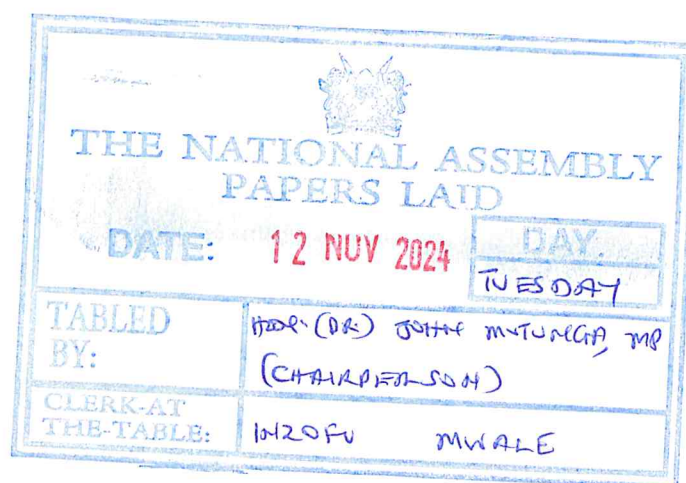 THE NATIONAL ASSEMBLY
PAPERS LAID
DATE: 12 NOV 2024
DAY.
TUESDAY
TABLED BY:
HON. (DR.) JOHN MUTUNGA, MP
(CHAIRPERSON)
CLERK-AT
THE-TABLE:
INZOFU MWALE